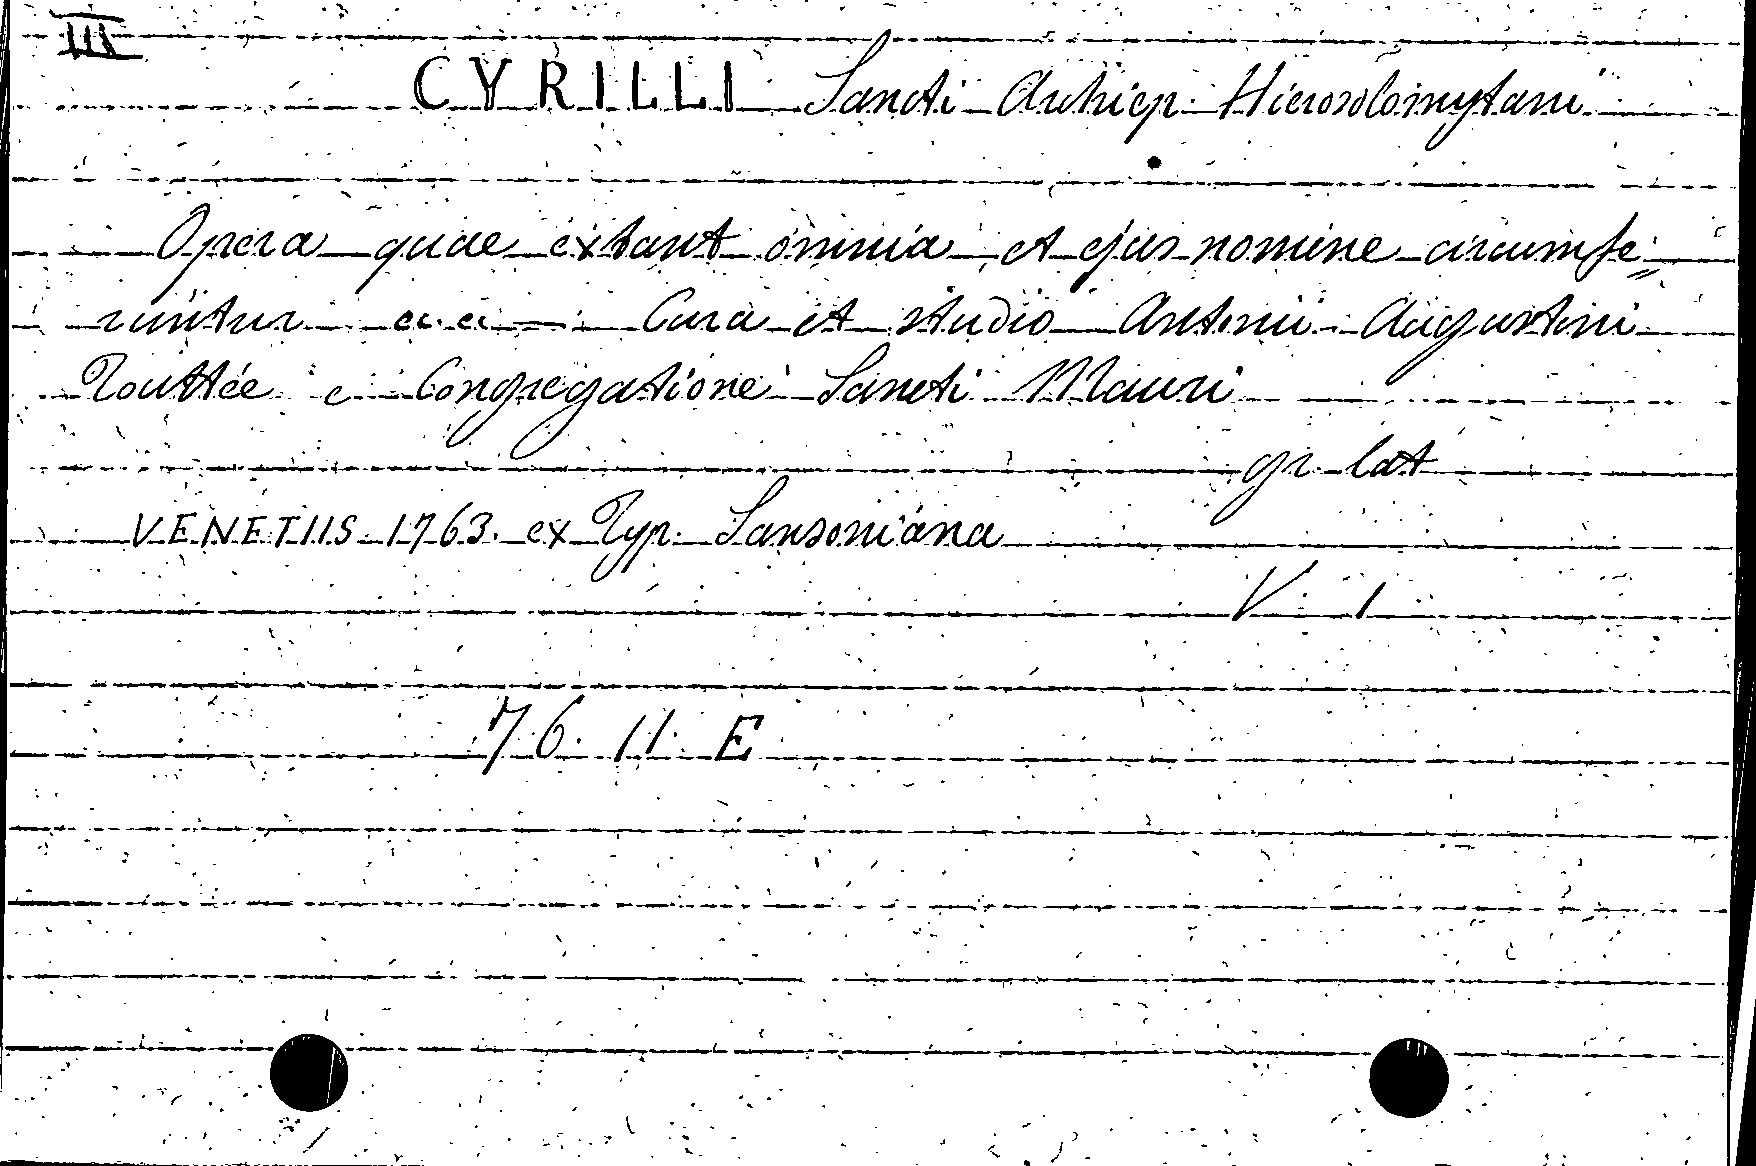 III
CYRILLI Sancti Archiep. Hierosolomytani
Opera quae extant omnia, et ejus nomine circumfe=
runtur Cura et studio Antonii Augustini
Touttée e Congregatione Sancti Mauri
gr. lat
VENETIIS 1763. ex Typ. Sansoniana
V. 1
76. 11. E